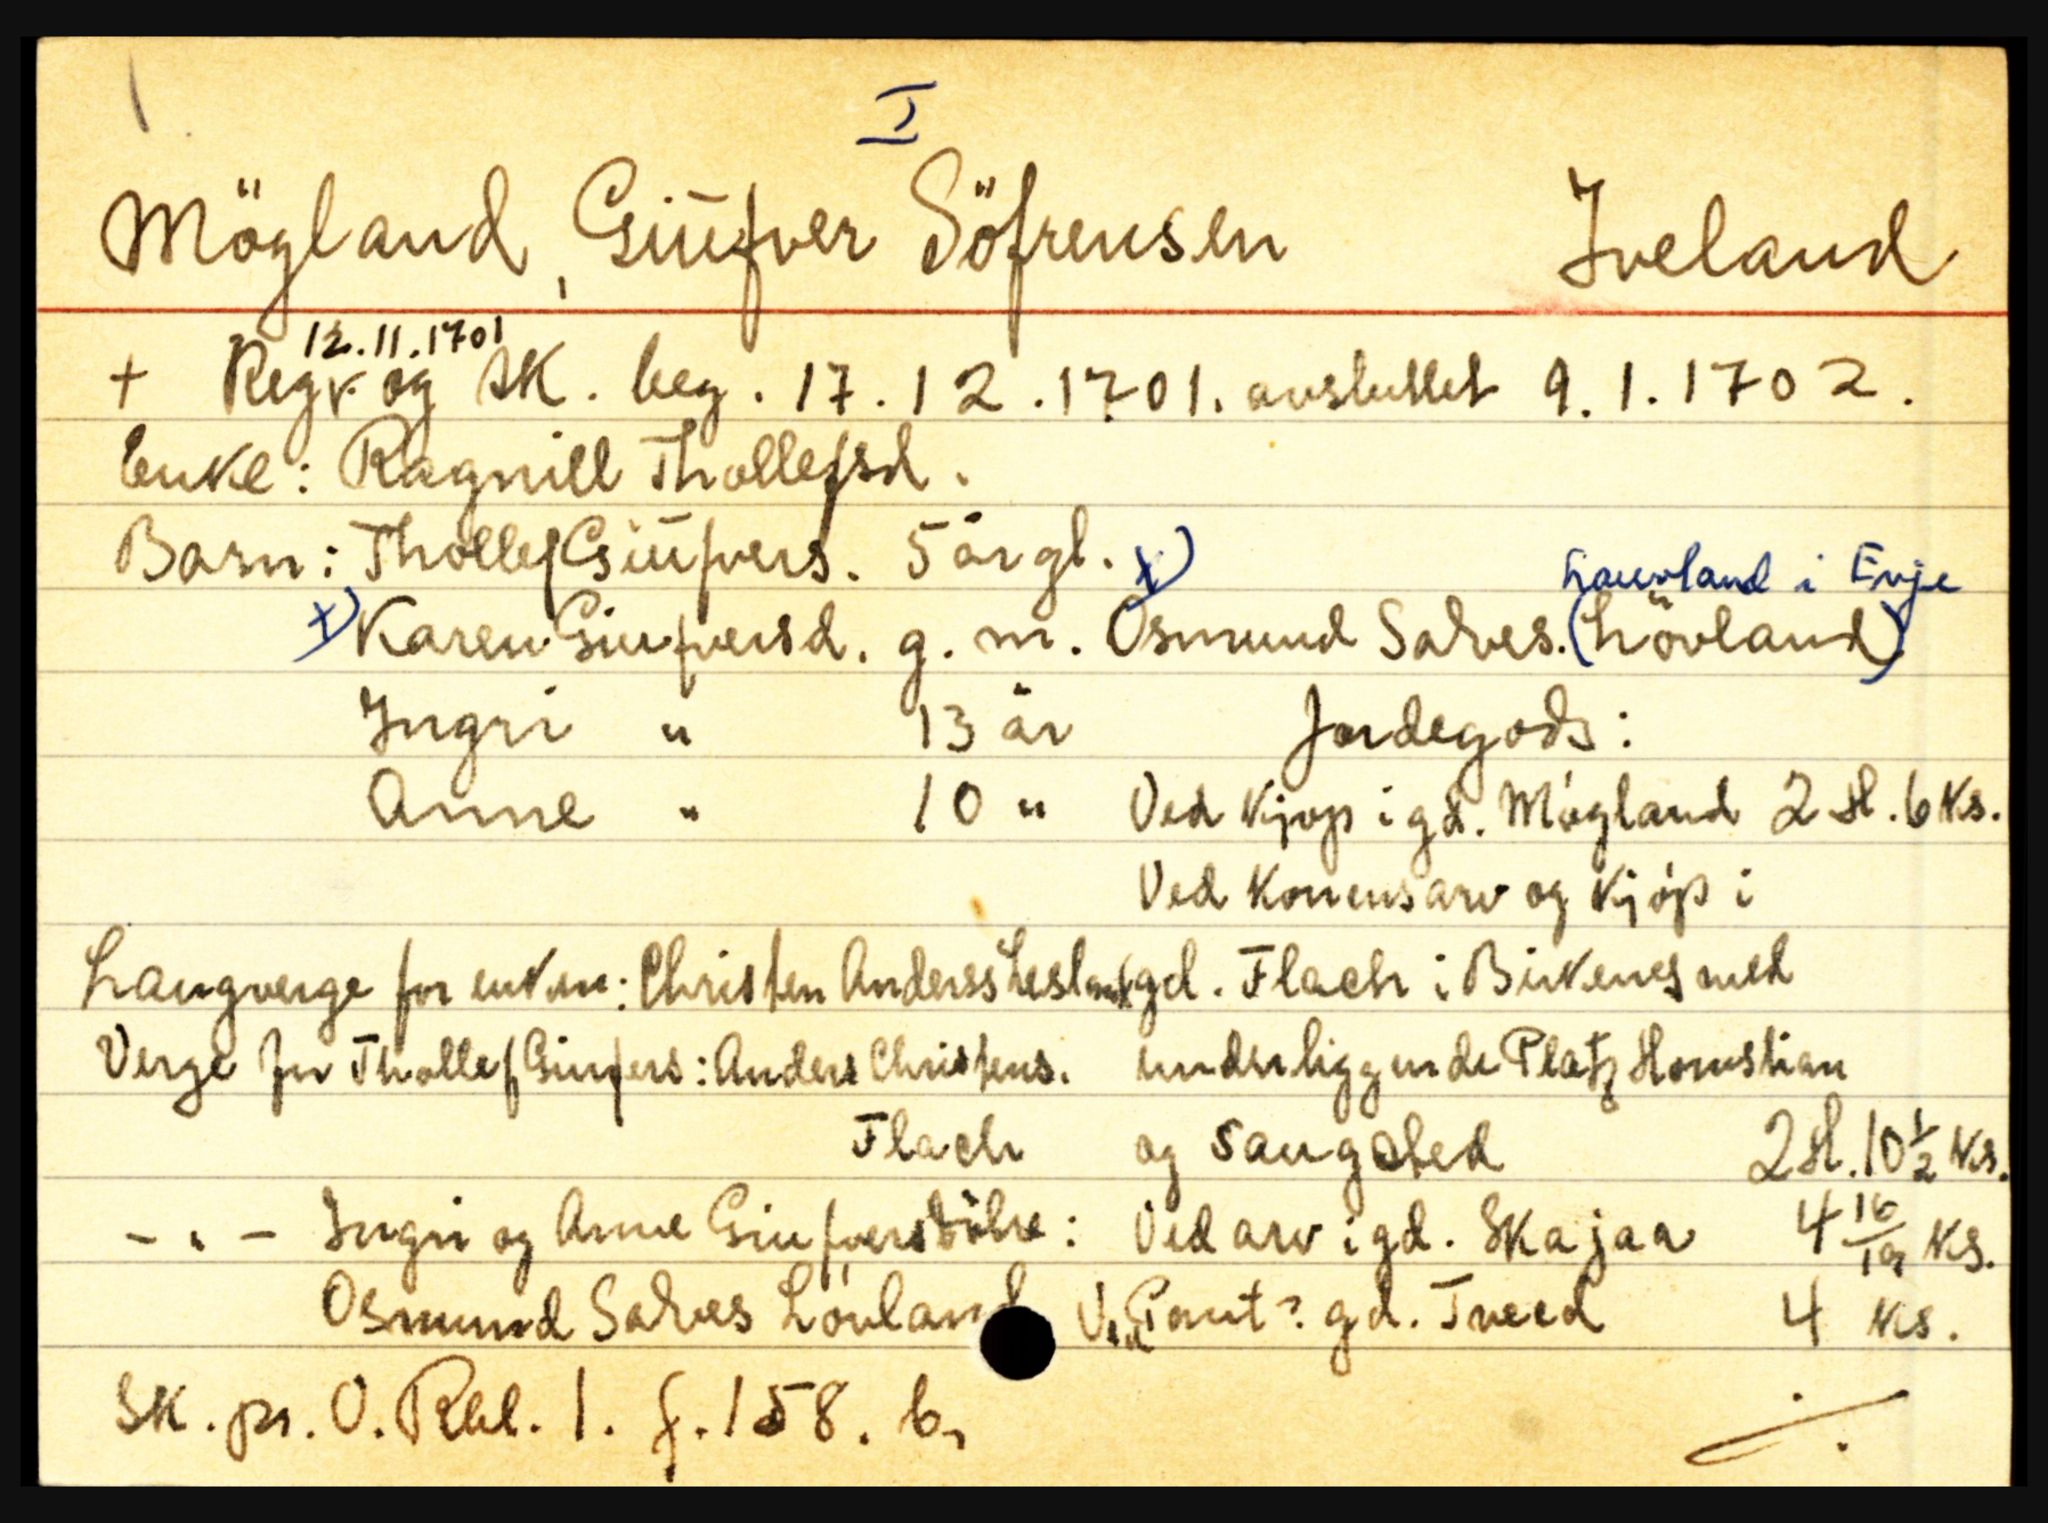 I
Mögland, Giüfver Söfrensen Iveland
12.11.1701
+ Regr. og sk. beg. 17.12.1701. avsluttet 9.1.1702.
Enke: Ragnill Thollefsd.
Barn: Thollef Giüfvers. 5 år gl.
x) Lauvland i Evje
x) Karen Giufversd. g. m. Osmund Salves. (Lövland)
Ingri " 13 år Jordegods:
Anne " 10 " Ved kjøp i gd. Mögland 2 H. 6 ks.
Ved konensarv og kjøp i
Laugverge for enken: Christen Anderss gd. Flach i Birkenes med
Verge for Thollef Giufvers: Anders Christens. underliggende Platz
Flach og Saugsted 2 H. 10 1/2 ks.
- " - Ingri og Anne Giufversdötre: Ved arv i gd. Skajaa 4 16/19 ks.
Osmund Salves Lövland Ved Pant? gd. Tveed 4 ks.
Sk. pr. O. Rbl. 1. f. 158. b.